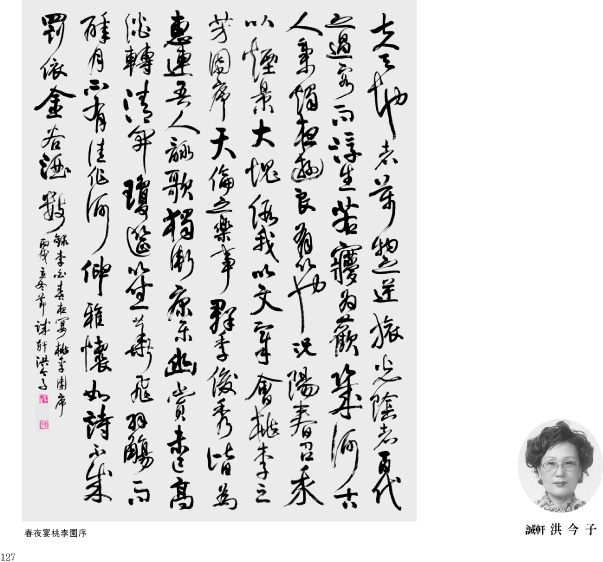 夫天地者萬物之逆旅光陰者百代
之過客而浮生若夢為歡幾何古
人秉燭夜遊良有以也況陽春召我
以煙景大塊假我以文章會桃李之
芳園序天倫之樂事群季俊秀皆為
惠連吾人詠歌獨慚康樂幽賞未已高
談轉清開瓊筵以坐華飛羽觴而
醉月不有佳作何伸雅懷如詩不成
罰依金谷酒數
錄李白春夜宴桃李園序
丙戌立冬節 誠軒洪今子
春夜宴桃李園序
誠軒 洪今子
127